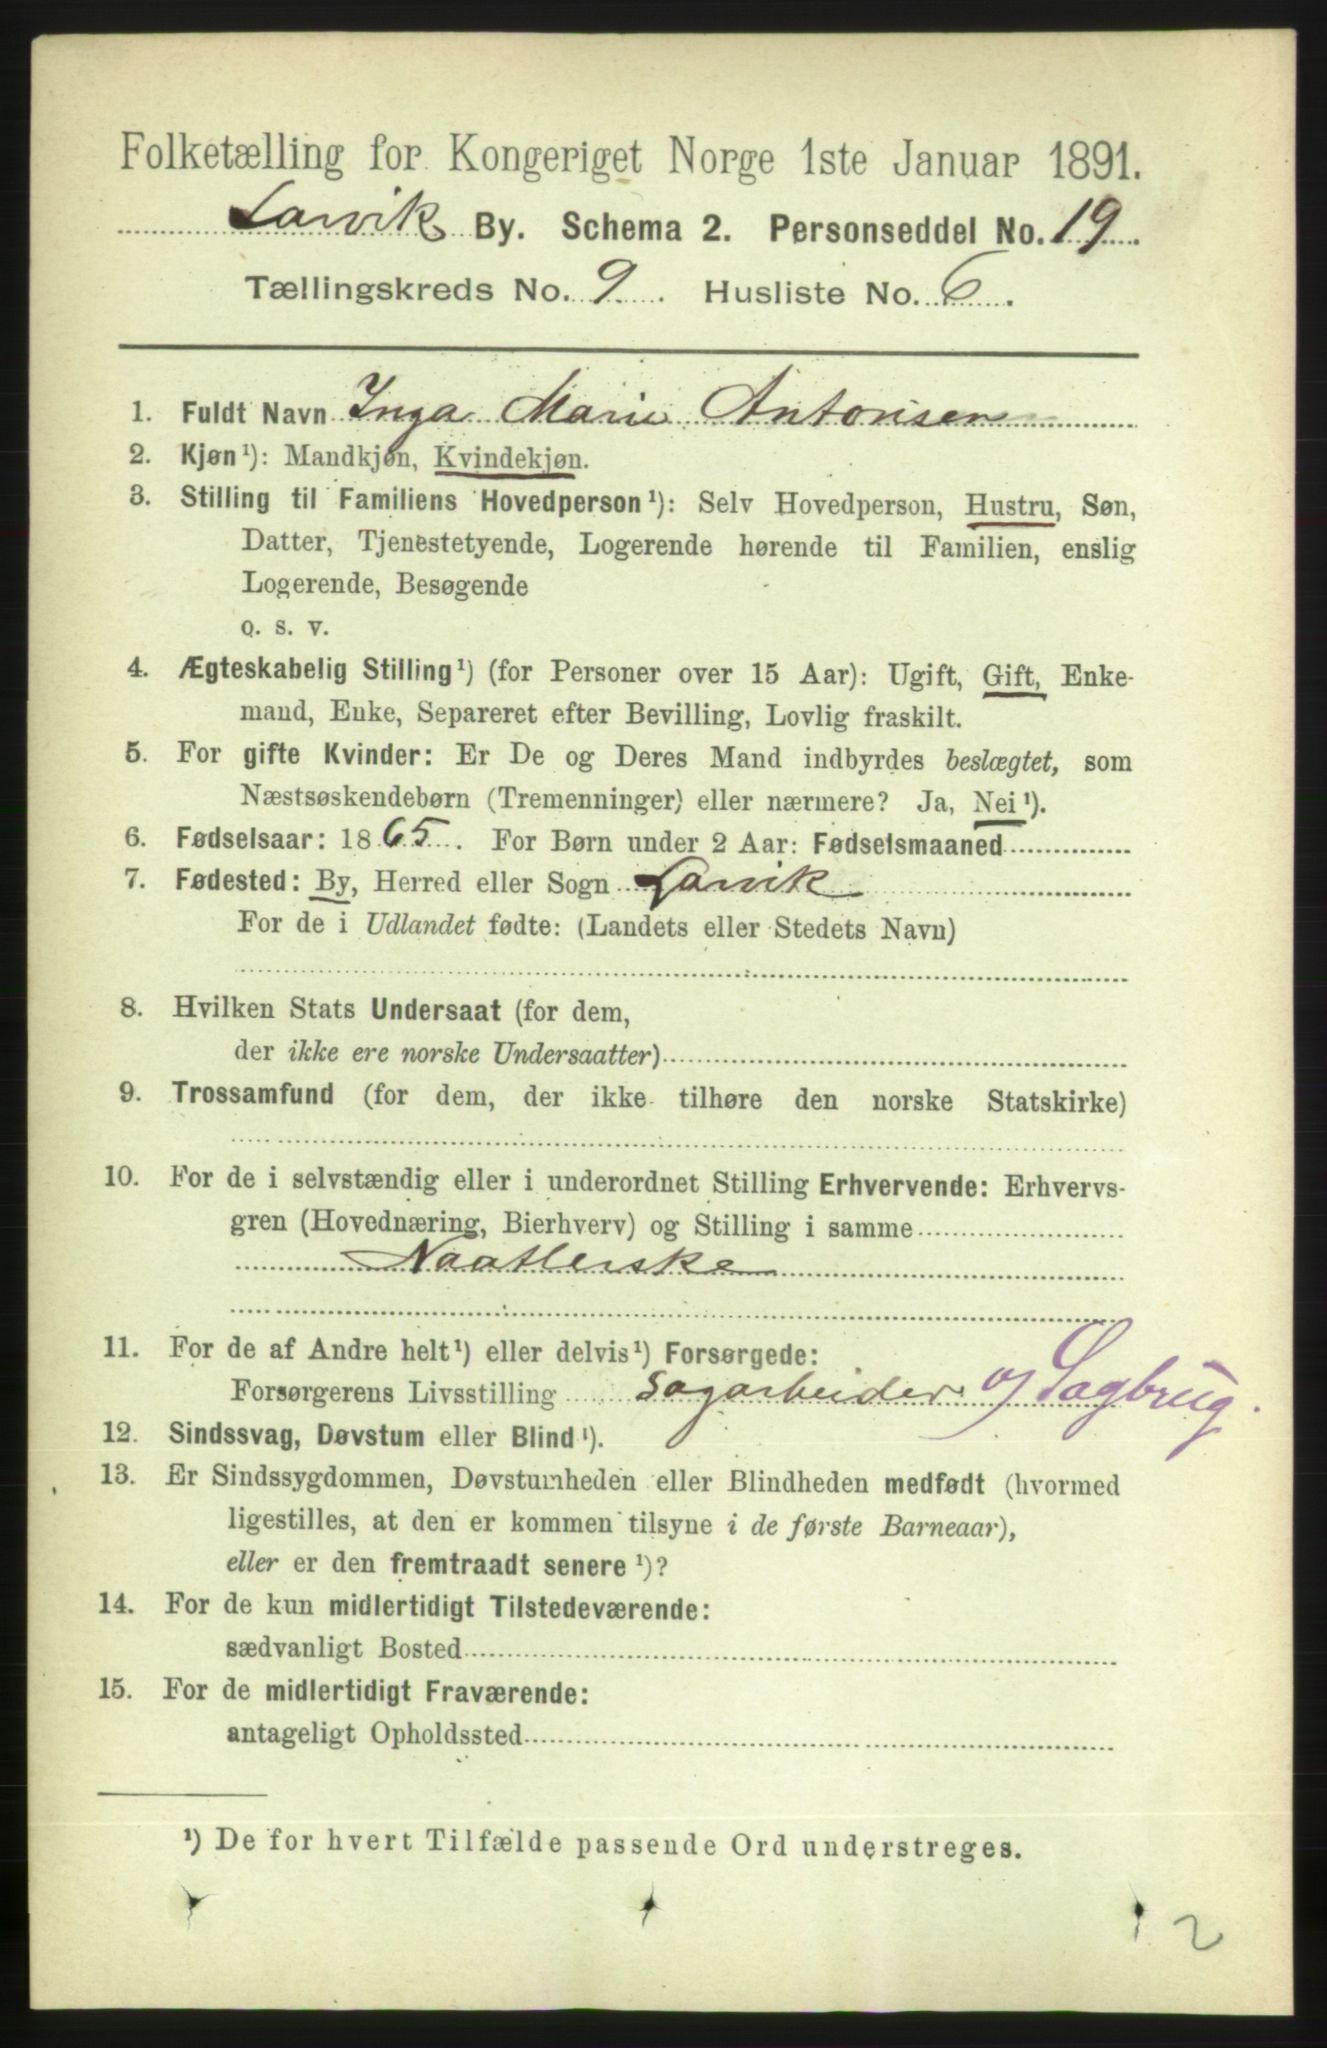 Folketælling for Kongeriget Norge 1ste Januar 1891.
Larvik By. Schema 2. Personseddel No. 19
Tællingskreds No. 9. Husliste No. 6.
1. Fuldt Navn Inga Marie Antonisen
2. Kjøn¹): Mandkjøn, Kvindekjøn.
3. Stilling til Familiens Hovedperson¹): Selv Hovedperson, Hustru, Søn,
Datter, Tjenestetyende, Logerende hørende til Familien, enslig
Logerende, Besøgende
o. s. v.
4. Ægteskabelig Stilling¹) (for Personer over 15 Aar): Ugift, Gift, Enke-
mand, Enke, Separeret efter Bevilling, Lovlig fraskilt.
5. For gifte Kvinder: Er De og Deres Mand indbyrdes beslægtet, som
Næstsøskendebørn (Tremenninger) eller nærmere? Ja, Nei¹).
6. Fødselsaar: 1865. For Børn under 2 Aar: Fødselsmaaned
7. Fødested: By, Herred eller Sogn Larvik
For de i Udlandet fødte: (Landets eller Stedets Navn)
8. Hvilken Stats Undersaat (for dem,
der ikke ere norske Undersaatter)
9. Trossamfund (for dem, der ikke tilhøre den norske Statskirke)
10. For de i selvstændig eller i underordnet Stilling Erhvervende: Erhvervs-
gren (Hovednæring, Bierhverv) og Stilling i samme
Naatlerske
11. For de af Andre helt¹) eller delvis¹) Forsørgede:
Forsørgerens Livsstilling Sagarbeider o/ Sagbrug.
12. Sindssvag, Døvstum eller Blind¹).
13. Er Sindssygdommen, Døvstumheden eller Blindheden medfødt (hvormed
ligestilles, at den er kommen tilsyne i de første Barneaar),
eller er den fremtraadt senere¹)?
14. For de kun midlertidigt Tilstedeværende:
sædvanligt Bosted
15. For de midlertidigt Fraværende:
antageligt Opholdssted
¹) De for hvert Tilfælde passende Ord understreges.
2